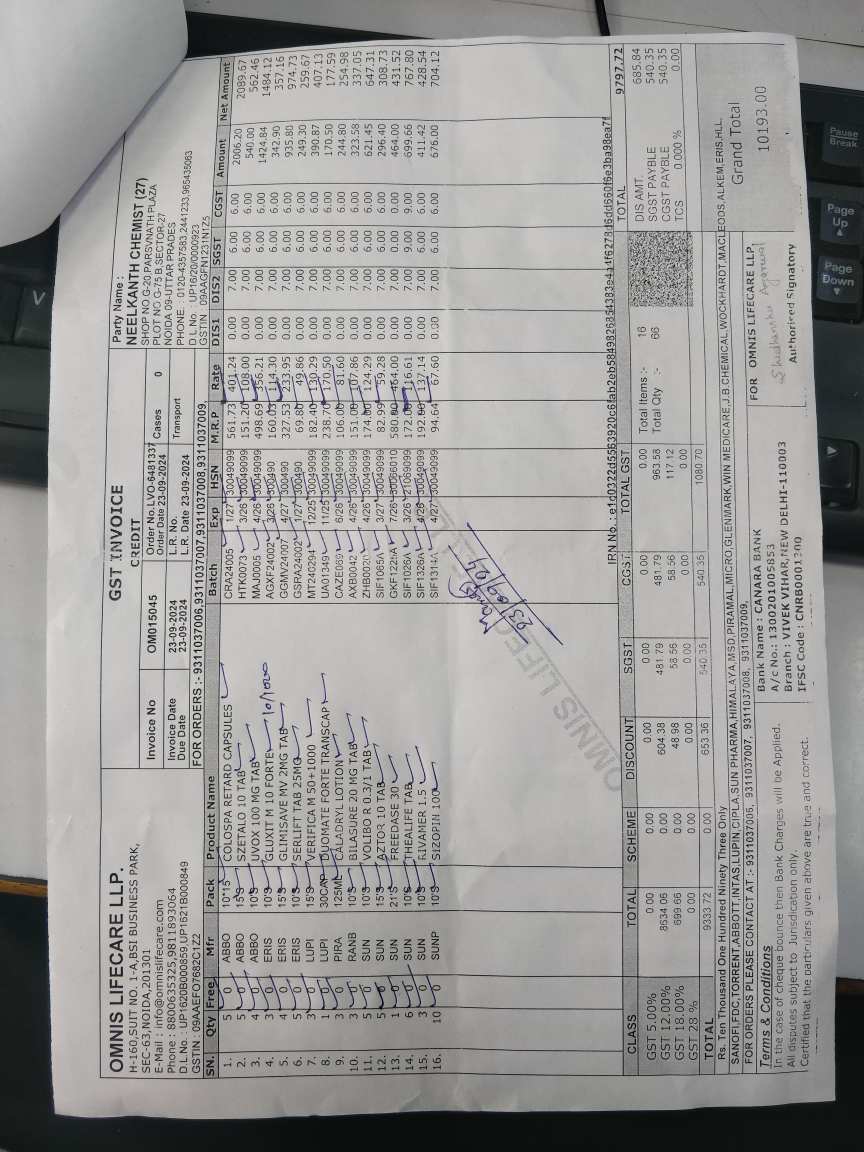 OMNIS LIFECARE LLP.
H-160,SUIT NO. 1-A,BSI BUSINESS PARK,
SEC-63,NOIDA,201301
E-Mail : info@omnislifecare.com
Phone : 8800635325,9811893064
D.L.No : UP1620B000859,UP1621B000849
GSTIN : 09AAEFO7682C1Z2
GST INVOICE
CREDIT
Invoice No OM015045
Order No. LVO-6481337
Order Date 23-09-2024
Cases 0
Invoice Date 23-09-2024
Due Date 23-09-2024
L.R. No.
L.R. Date 23-09-2024
Transport
FOR ORDERS :- 9311037006,9311037007,9311037008,9311037009,
Party Name :
NEELKANTH CHEMIST (27)
SHOP NO G-20 PARSVNATH PLAZA
PLOT NO G-75 B,SECTOR-27
NOIDA 09-UTTAR PRADES
PHONE : 0120-4357583,2441233,965435063
D.L.No. : UP16/20/0000923
GSTIN : 09AAGFN1231N1Z5
SN. Qty Free Mfr Pack Product Name Batch Exp HSN M.R.P Rate DIS1 DIS2 SGST CGST Amount Net Amount
1. 5 0 ABBO 10*15 COLOSPA RETARD CAPSULES CRA24005 1/27 30049099 561.73 401.24 0.00 7.00 6.00 6.00 2006.20 2089.67
2. 5 0 ABBO 15'S SZETALO 10 TAB HTK0073 3/26 30049099 151.20 108.00 0.00 7.00 6.00 6.00 540.00 562.46
3. 4 0 ABBO 10'S UVOX 100 MG TAB MAJ0005 4/26 30049099 498.69 356.21 0.00 7.00 6.00 6.00 1424.84 1484.12
4. 3 0 ERIS 10'S GLUXIT M 10 FORTE 10/1000 AGXF24002 3/26 300490 160.03 114.30 0.00 7.00 6.00 6.00 342.90 357.16
5. 4 0 ERIS 15'S GLIMISAVE MV 2MG TAB GGMV24007 4/27 300490 327.53 233.95 0.00 7.00 6.00 6.00 935.80 974.73
6. 5 0 ERIS 10'S SERLIFT TAB 25MG GSRA24002 1/27 300490 69.80 49.86 0.00 7.00 6.00 6.00 249.30 259.67
7. 3 0 LUPI 15'S VERIFICA M 50+1000 MT240294 12/25 30049099 182.40 130.29 0.00 7.00 6.00 6.00 390.87 407.13
8. 1 0 LUPI 30CAP DUOMATE FORTE TRANSCAP UA01349 11/25 30049099 238.70 170.50 0.00 7.00 6.00 6.00 170.50 177.59
9. 3 0 PIRA 125ML CALADRYL LOTION CAZE069 6/26 30049099 106.00 81.60 0.00 7.00 6.00 6.00 244.80 254.98
10. 3 0 RANB 10'S BILASURE 20 MG TAB AXB0042 4/26 30049099 151.00 107.86 0.00 7.00 6.00 6.00 323.58 337.05
11. 5 0 SUN 10'S VOLIBO R 0.3/1 TAB ZHB0020 4/26 30049099 174.00 124.29 0.00 7.00 6.00 6.00 621.45 647.31
12. 5 0 SUN 15'S AZTOR 10 TAB SIF1065A 3/27 30049099 82.99 59.28 0.00 7.00 6.00 6.00 296.40 308.73
13. 1 0 SUN 21'S FREEDASE 30 GKF1225A 7/26 464.00 0.00 7.00 0.00 0.00 464.00 431.52
14. 6 0 SUN 10'S THEALIFE TAB SIF1026A 3/26 116.61 0.00 7.00 9.00 9.00 699.66 767.80
15. 3 0 SUN 10'S RIVAMER 1.5 SIF1326A 4/26 30049099 137.14 0.00 7.00 6.00 6.00 411.42 428.54
16. 10 0 SUNP 10'S SIZOPIN 100 SIF1314A 4/27 30049099 94.64 67.60 0.00 7.00 6.00 6.00 676.00 704.12
23/09/24
OMNIS LIFEC
CLASS TOTAL SCHEME DISCOUNT SGST CGST TOTAL GST
GST 5.00% 0.00 0.00 0.00 0.00 0.00 0.00
GST 12.00% 8634.06 0.00 604.38 481.79 481.79 963.58
GST 18.00% 699.66 0.00 48.98 58.56 58.56 117.12
GST 28 % 0.00 0.00 0.00 0.00 0.00 0.00
TOTAL 9333.72 0.00 653.36 540.35 540.35 1080.70
Total Items :- 16
Total Qty :- 66
TOTAL 9797.72
DIS AMT. 685.84
SGST PAYBLE 540.35
CGST PAYBLE 540.35
TCS 0.000 % 0.00
Grand Total
10193.00
Rs. Ten Thousand One Hundred Ninety Three Only
SANOFI,FDC,TORRENT,ABBOTT,INTAS,LUPIN,CIPLA,SUN PHARMA,HIMALAYA,MSD,PIRAMAL,MICRO,GLENMARK,WIN MEDICARE,J.B.CHEMICAL,WOCKHARDT,MACLEODS,ALKEM,ERIS,HLL,
FOR ORDERS PLEASE CONTACT AT :- 9311037006, 9311037007, 9311037008, 9311037009,
Terms & Conditions
In the case of cheque bounce then Bank Charges will be Applied.
All disputes subject to Jurisdication only.
Certified that the particulars given above are true and correct.
Bank Name : CANARA BANK
A/c No.: 1300201005853
Branch : VIVEK VIHAR,NEW DELHI-110003
IFSC Code : CNRB0001300
FOR OMNIS LIFECARE LLP.
Shudhanshu Agarwal
Authorised Signatory
Pause
Break
Page
Up
Page
Down
V